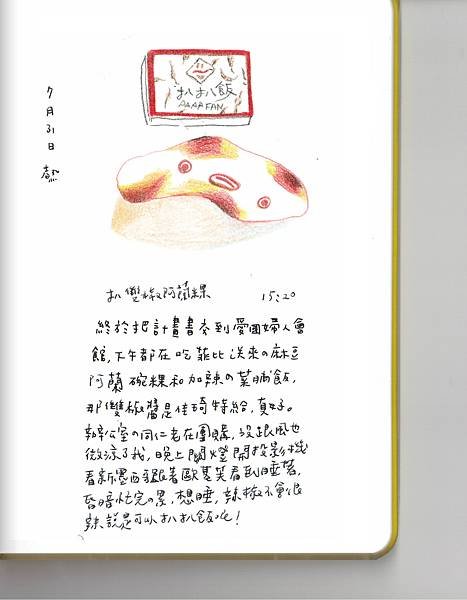 7月31日 熱
扒扒飯
PAAPFAN
扒雙椒阿蘭粿 15:20
終於把計畫書夯到愛國婦人會
館,下午都在吃菲比送來の麻豆
阿蘭碗粿和加辣の菜脯飯,
那雙椒醬是佳琦特給,真好。
辦公室の同仁老在團購,沒跟風也
微涼了我,晚上關燈開投影機
看新墨西
看到睡著,
昏暗忙完の累,想睡,辣椒不會很
辣說是可以扒扒飯吃!